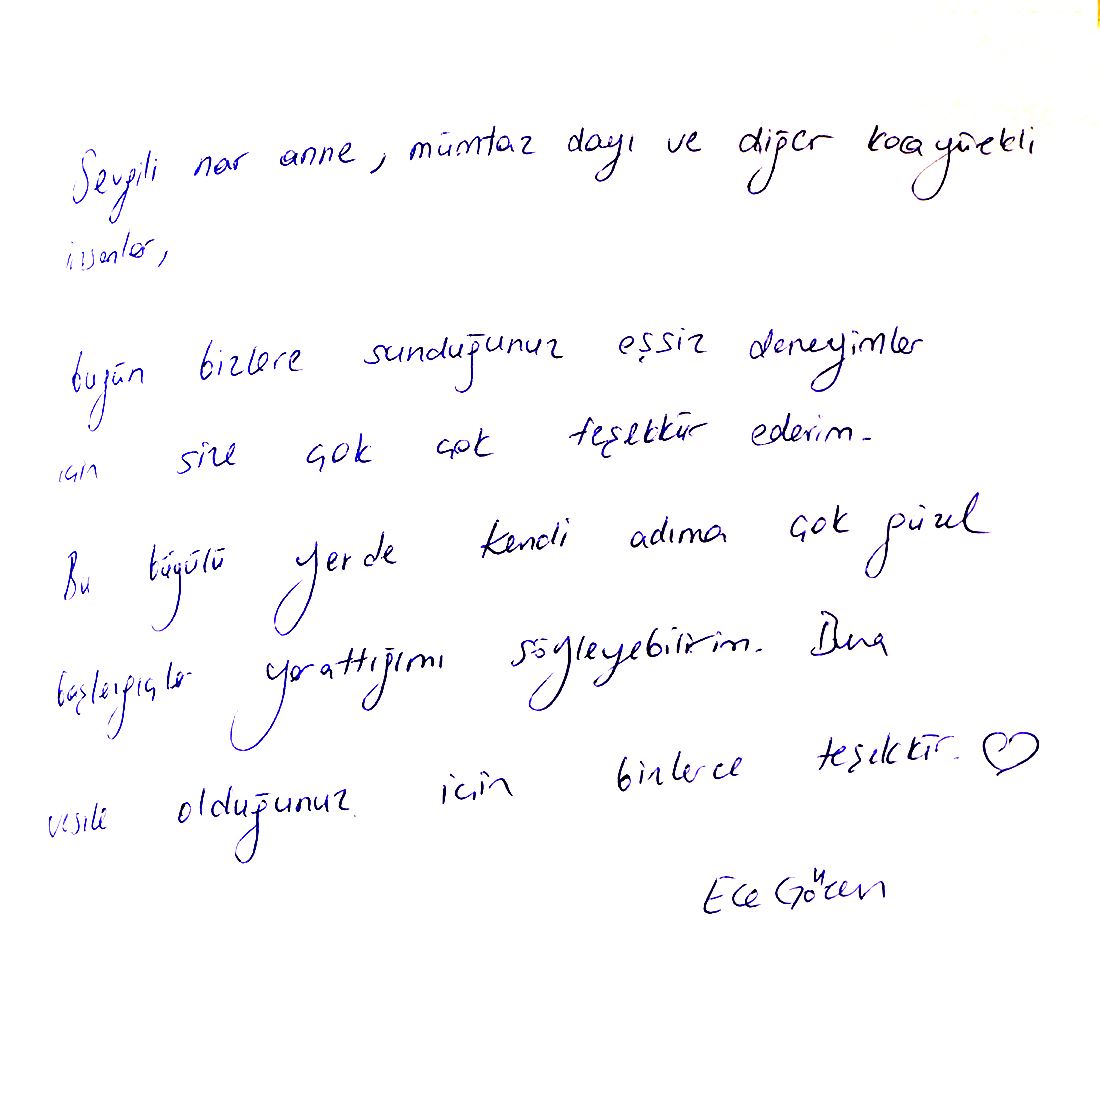 Sevgili nar anne, mümtaz dayı ve diğer koca yürekli
insanlar,
bugün bizlere sunduğunuz eşsiz deneyimler
için size çok çok teşekkür ederim.
Bu büyülü yerde kendi adıma çok güzel
başlangıçlar yarattığımı söyleyebilirim. Buna
vesile olduğunuz için binlerce teşekkür. ♡
Ece